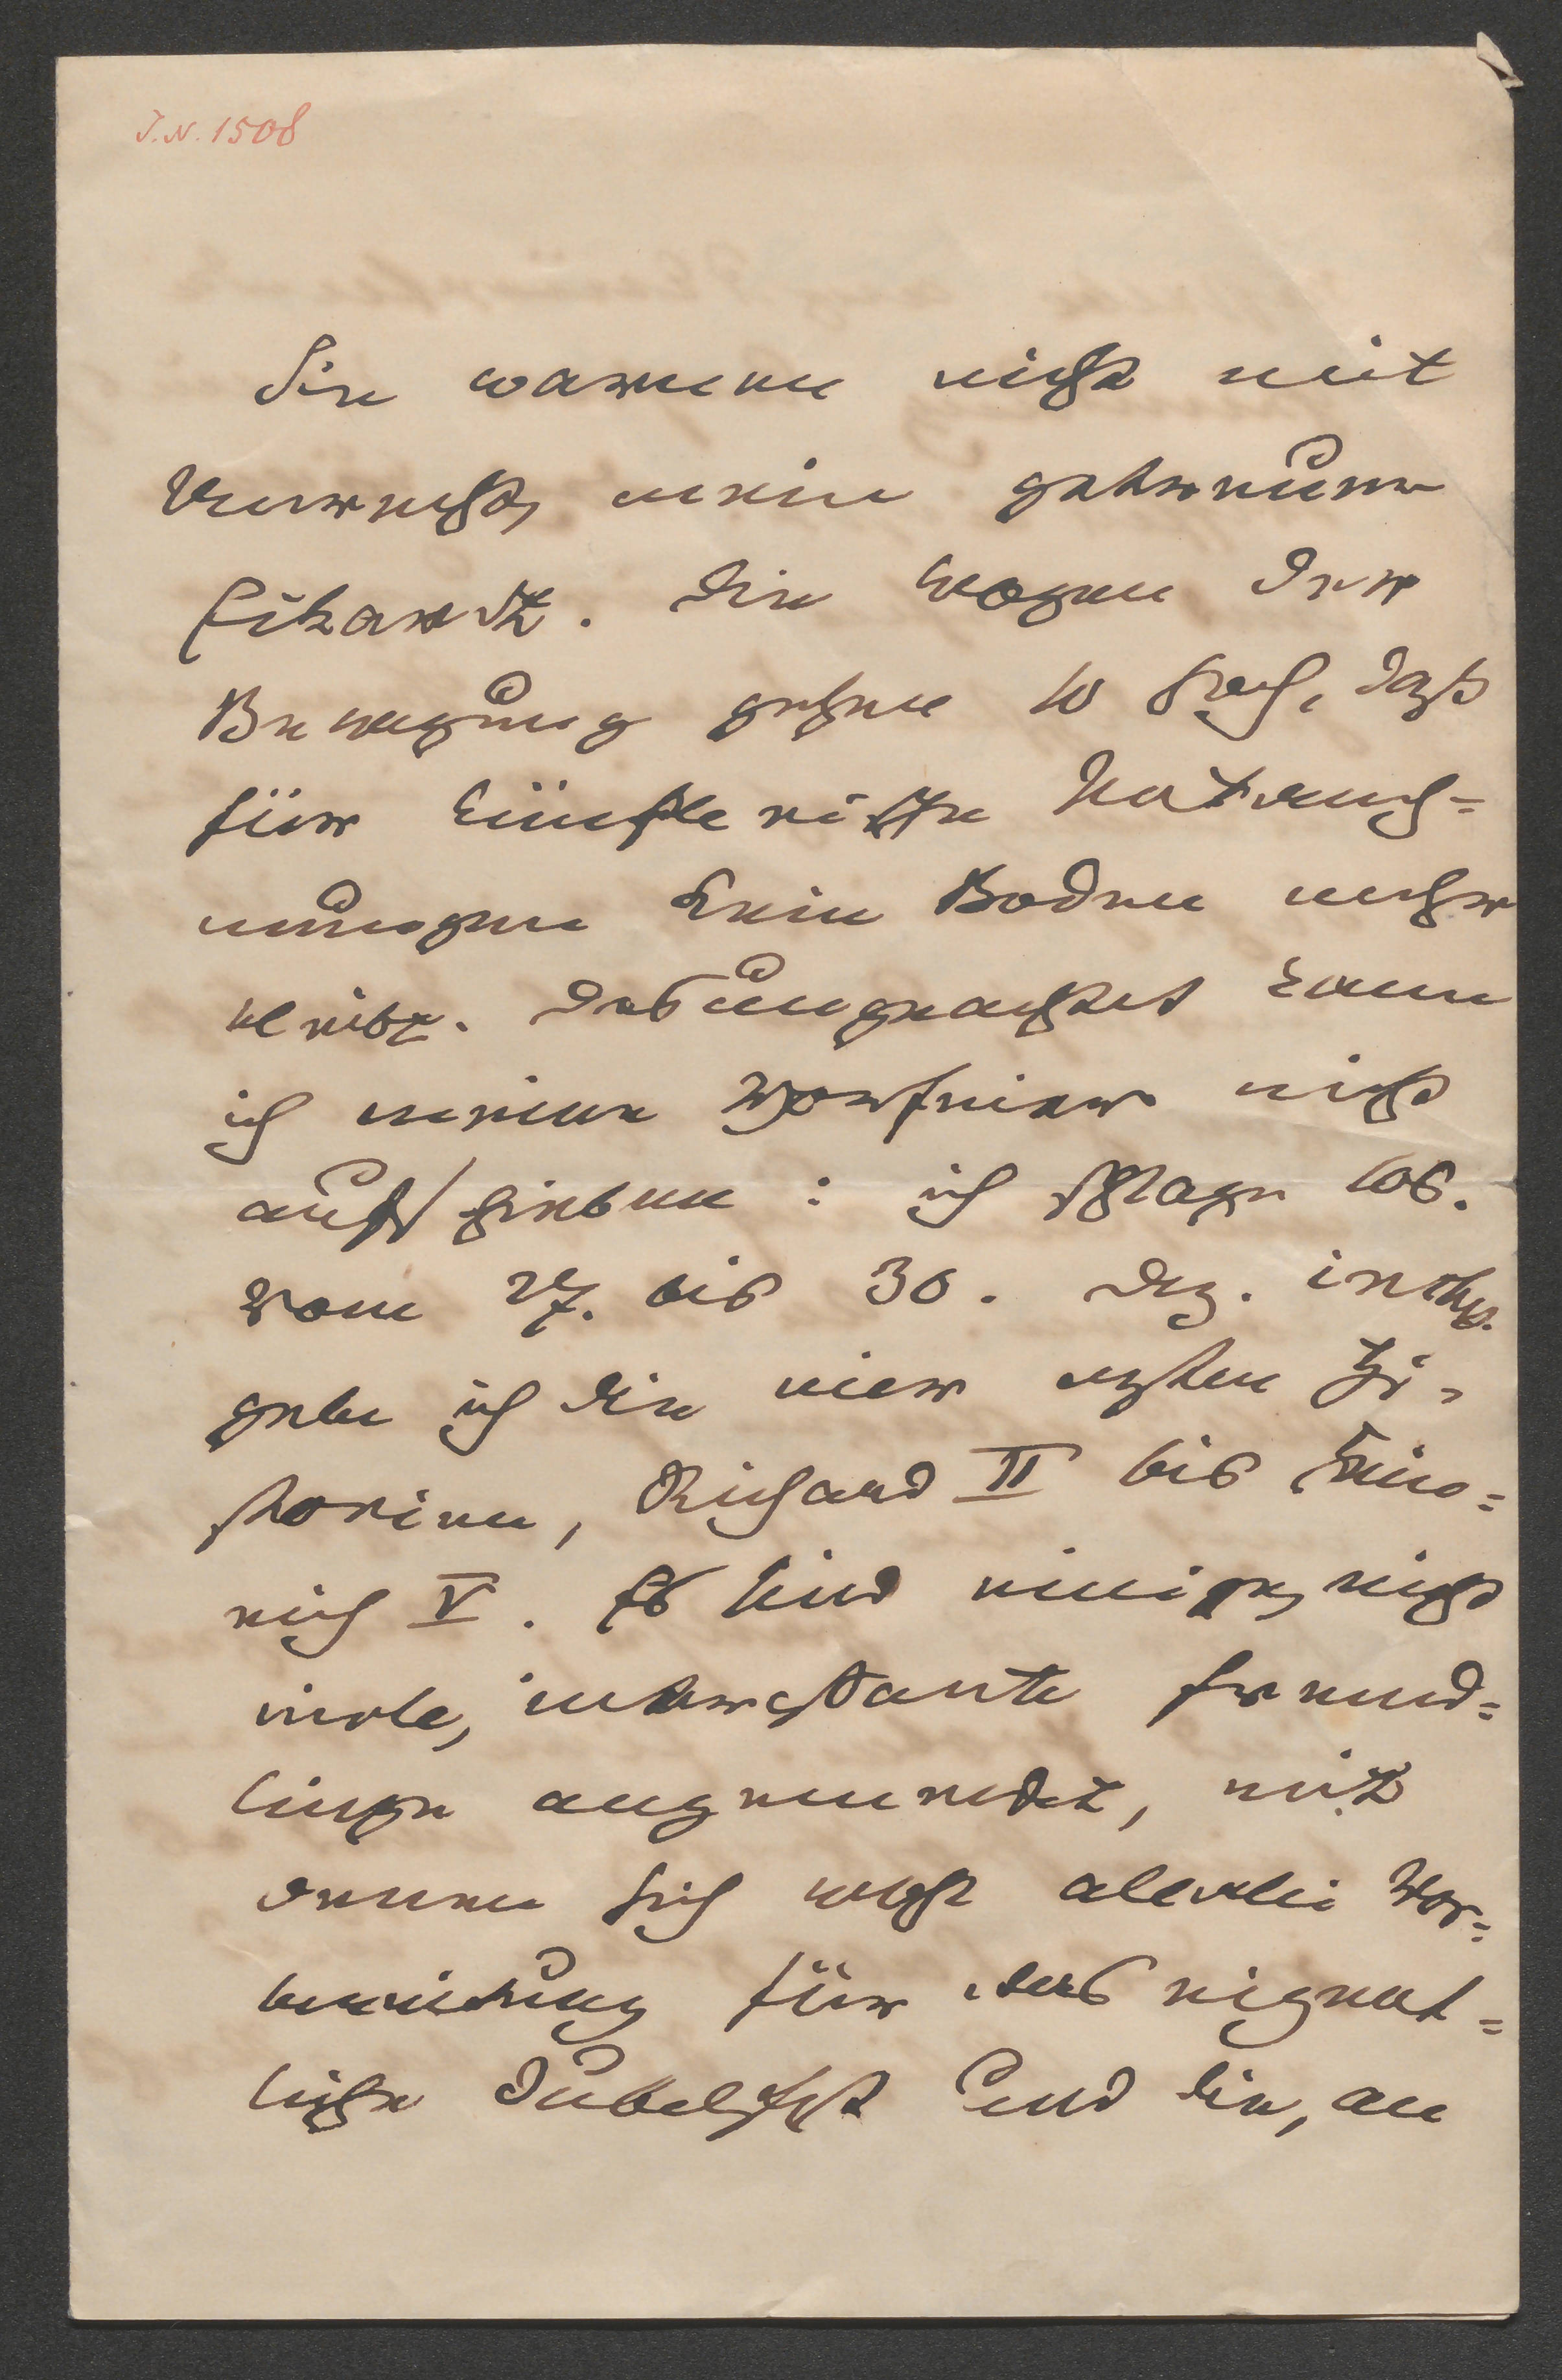 J.N. 1508
Sie warnen nicht mit
Unrecht, mein getreuer
Eckardt. Die Wogen der
Bewegung gehen so hoch, daß
für künstlerische Unternehm=
ungen kein Boden mehr
bleibt. Desungeachtet kann
ich meine Vorfeier nicht
aufschieben: ich schlage los.
Vom 27. bis 30. Dez. incl.
gebe ich die vier ersten Hi=
storien, Richard II bis Hein=
rich V. Es sind einige, nicht
viele, interessante Fremd=
linge angemeldet, mit
denen sich wohl allerlei Vor=
bereitung für das eigent=
liche Jubelfest und die, an